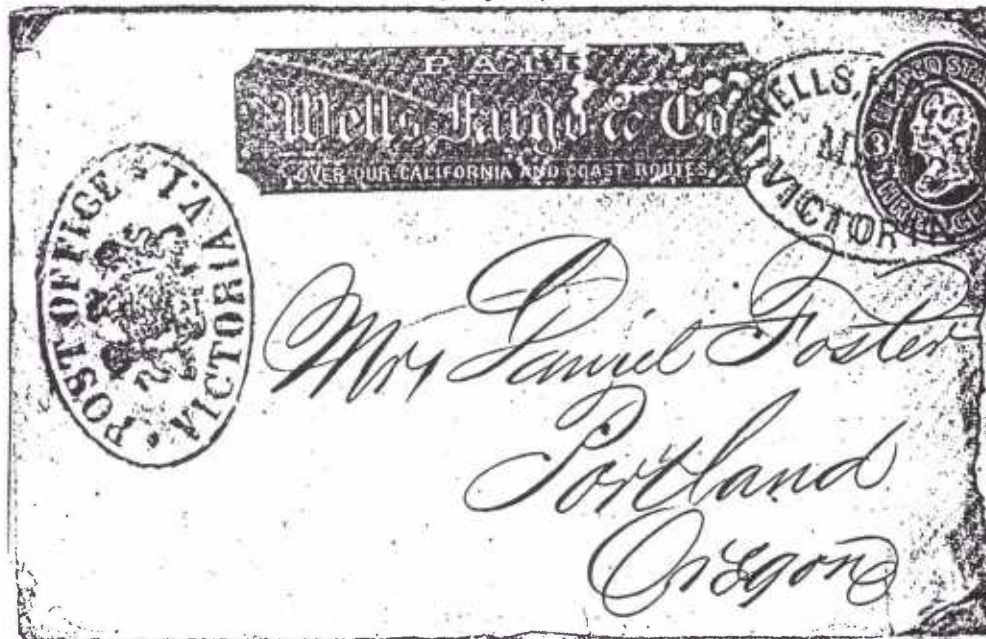 PAID
Wells, Fargo & Co
OVER OUR CALIFORNIA AND COAST ROUTES.
WELLS,
VICTORIA
UNITED STA
3
THREE CEN
POST OFFICE
VICTORIA V.I.
Mrs Daniel Foster
Portland
Oregon